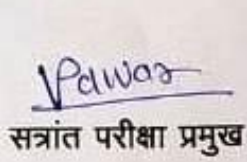 Pawar
सत्रांत परीक्षा प्रमुख